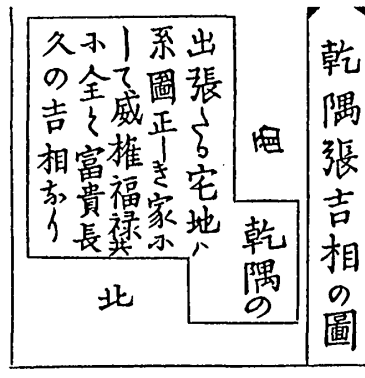 乾隅張吉相の圖
西
乾隅の
出張たる宅地ハ
系圖正しき家に
して威權福禄共
に全く富貴長
久の吉相なり
北